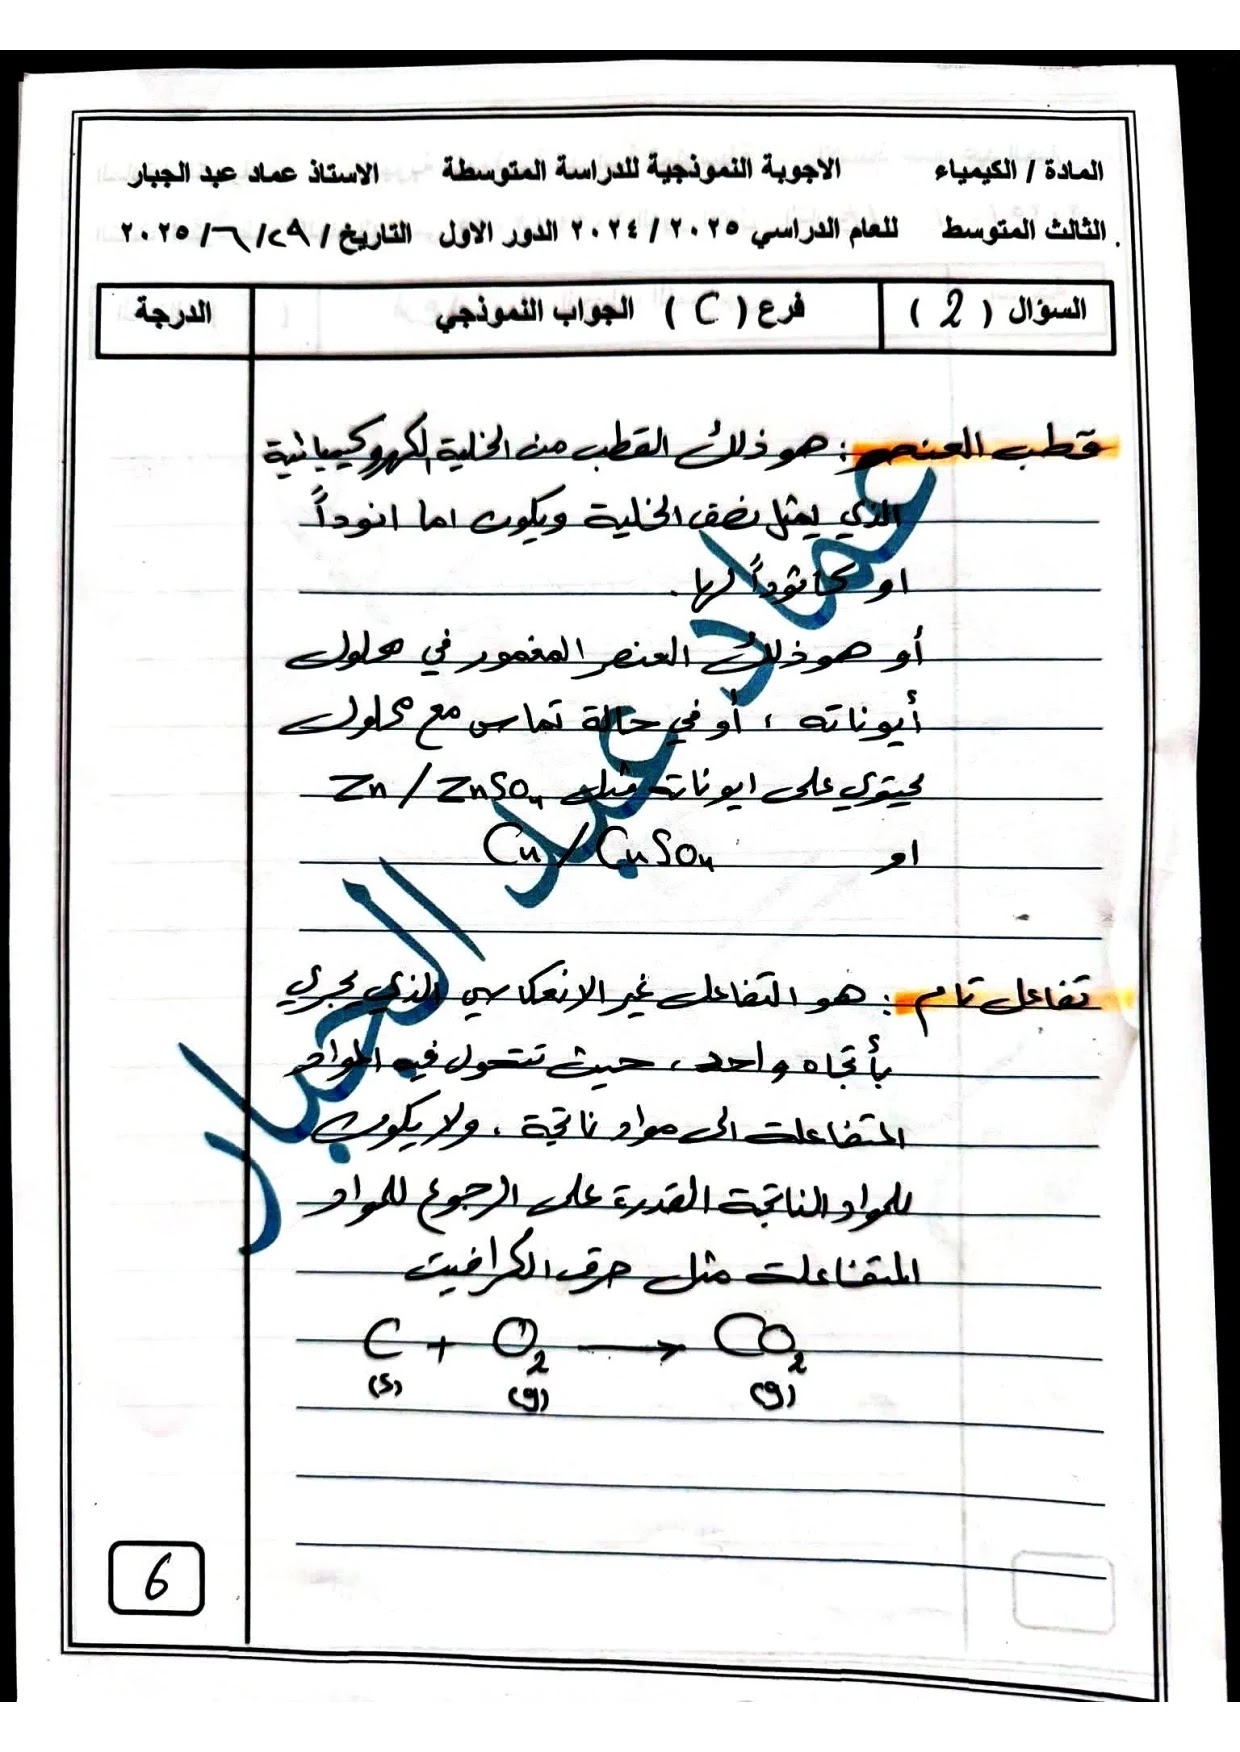 المادة / الكيمياء الاجوبة النموذجية للدراسة المتوسطة الاستاذ عماد عبد الجبار
الثالث المتوسط للعام الدراسي ٢٠٢٥ / ٢٠٢٤ الدور الاول التاريخ / ٢٩ / ٦ / ٢٠٢٥
السؤال ( 2 ) فرع ( C ) الجواب النموذجي الدرجة
قطب العنصر : هو ذلك القطب من الخلية الكهروكيميائية
الذي يمثل نصف الخلية ويكون اما انوداً
او كاثوداً لها .
أو هو ذلك العنصر المغمور في محلول
أيوناته ، أو في حالة تماس مع محلول
يحتوي على ايوناته مثل Zn / ZnSO₄
او Cu / CuSO₄
تفاعل تام : هو التفاعل غير الانعكاسي الذي يجري
بأتجاه واحد ، حيث تتحول فيه المواد
المتفاعلة الى مواد ناتجة ، ولا يكون
للمواد الناتجة القدرة على الرجوع للمواد
المتفاعلة مثل حرق الكرافيت
C + O₂ ⟶ CO₂
(s) (g) (g)
6
عماد عبد الجبار